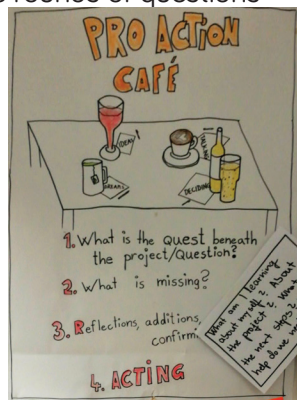 of questions
PRO ACTION
CAFÉ
IDEAS!
TALKING
DREAMS
DECIDING
1. What is the quest beneath
the project/Question?
2. What is missing?
3. Reflections, additions,
confirm.
4. ACTING
What am I learning
about myself? About
the project? What
the next steps?
help do we